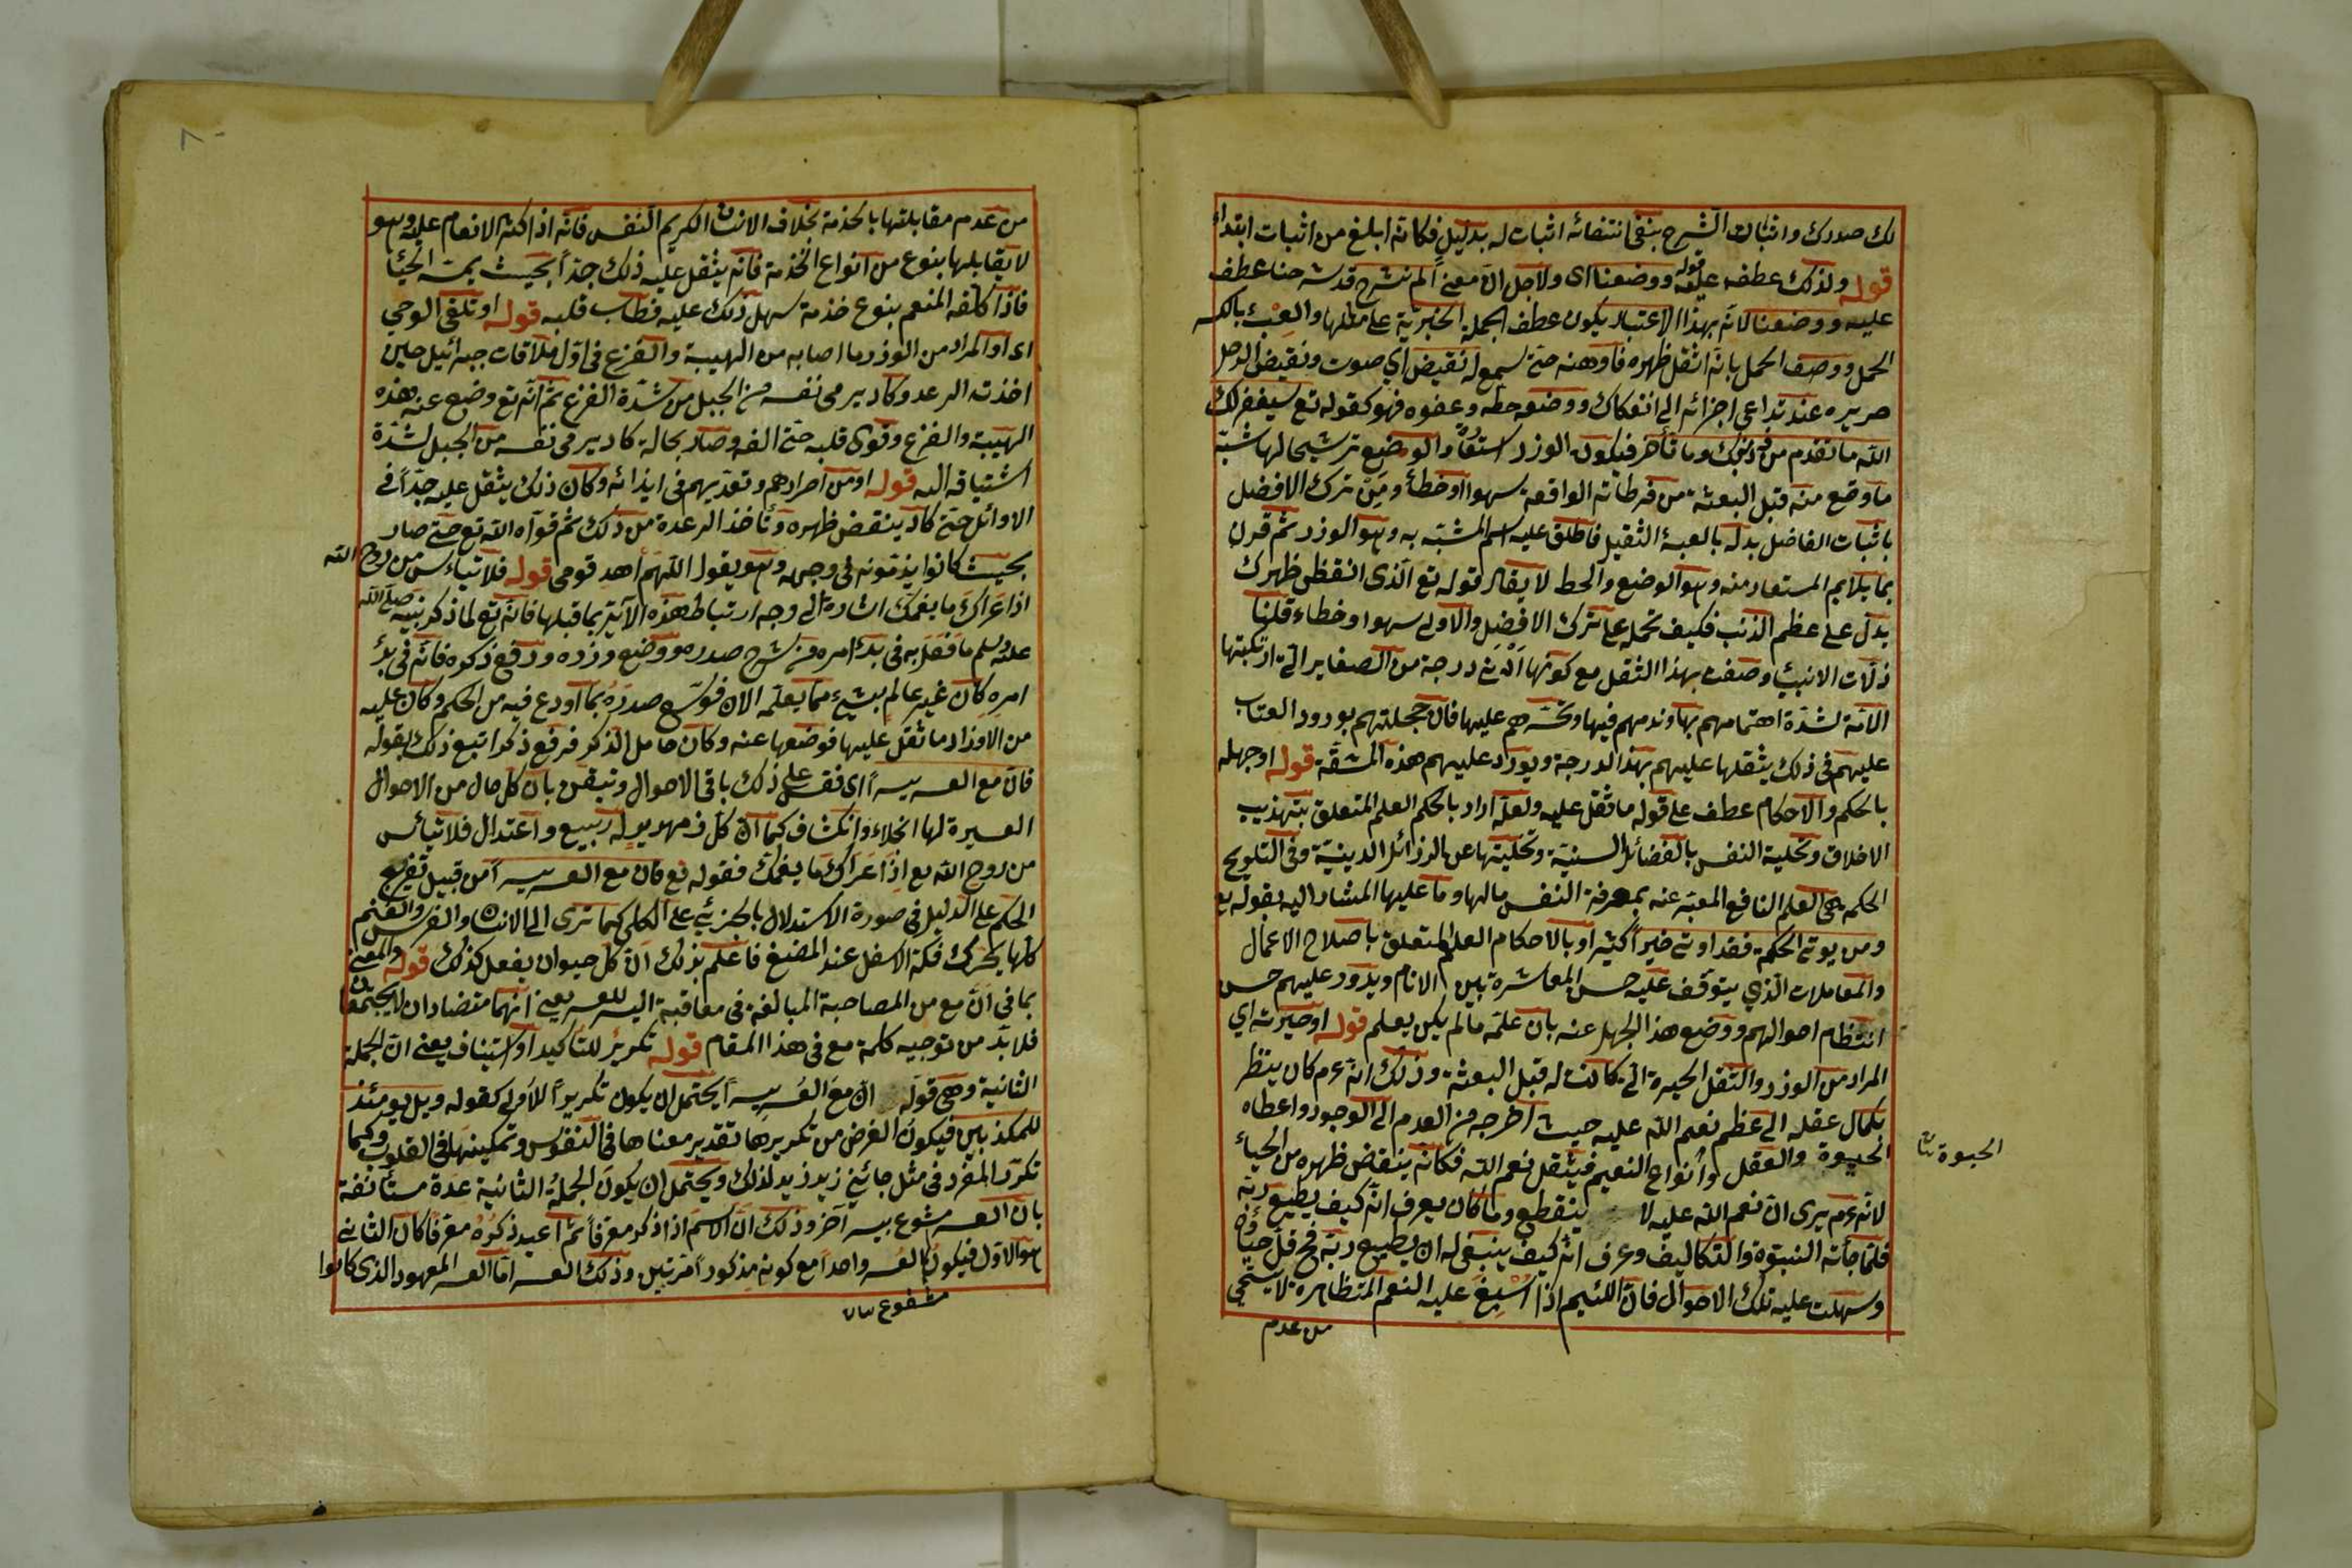 لك صدرك واثبات الشرح بنفى انتفائه اثبات له بدليل فكانه ابلغ من اثبات ابتداء
قوله ولذلك عطف عليه قوله ووضعنا اى ولاجل ان معنى الم نشرح قد شرحنا عطف
عليه ووضعنا لانه بهذا الاعتبار يكون عطف الجملة الخبرية على مثلها والعبء بالكسر
الحمل ووصف الحمل بانه اثقل ظهره فاوهنه حتى سمع له نقيض اى صوت ونقيض الرحل
صريره عند تداعى اجزائه الى انفكاك ووضعه حطه وعفوه فهو كقوله تع سيغفر لك
الله ما تقدم من ذنبك وما تأخر فيكون الوزر استعارة والوضع ترشيحا لها شبه
ما وقع منه قبل البعثة من فرطاته الواقعة سهوا او خطأ ومن ترك الافضل
باثبات الفاضل بدله بالعبء الثقيل فاطلق عليه اسم المشبه به وهو الوزر ثم قرن
بما يلايم المستعار منه وهو الوضع والحط لا يقال قوله تع الذى انقض ظهرك
يدل على عظم الذنب فكيف تحمله على ترك الافضل والاولى سهوا وخطاء قلنا
ذلات الانبياء وصفت بهذا الثقل مع كونها ادنى درجة من الصغاير التى ارتكبتها
الامة لشدة اهتمامهم بها وندمهم فيها وتحسرهم عليها فان جملتهم بورود العتاب
عليهم فى ذلك يثقلها عليهم بهذا الدرجة ويورد عليهم هذه المشقة قوله او جهله
بالحكم والاحكام عطف على قوله ما ثقل عليه ولعله اراد بالحكم العلم المتعلق بتهذيب
الاخلاق وتحلية النفس بالفضائل السنية وتخليتها عن الرذائل الدينية وفى التلويح
الحكمة هى العلم النافع المعبر عنه بمعرفة النفس مالها وما عليها المشار اليه بقوله تع
ومن يؤتى الحكمة فقد اوتى خيرا كثيرا وبالاحكام العلم المتعلق باصلاح الاعمال
والمعاملات الذى يتوقف عليه حسن المعاشرة بين الانام ويدور عليهم حسن
انتظام احوالهم ووضع هذا الجهل عنه بان علمه مالم يكن يعلم قوله او حيرته اى
المراد من الوزر والثقل الحيرة التى كانت له قبل البعثة وذلك انه عم كان ينظر
بكمال عقله الى عظم نعم الله عليه حيث اخرجه من العدم الى الوجود واعطاه
الحيوة والعقل وانواع النعيم فيثقل نعم الله فكانه ينقض ظهره من الحياء
الحيوة
لانه عم يرى ان نعم الله عليه لا ينقطع وما كان يعرف انه كيف يطيع ربه
فلما جأته النبوة والتكاليف وعرف انه كيف ينبغى له ان يطيع ربه فح قل حياؤه
وسهلت عليه تلك الاحوال فان اللئيم اذا اسبغ عليه النعم المتظاهرة لا يستحيى
من عدم
من عدم مقابلتها بالخذمة بخلاف الانسان الكريم النفس فانه اذا اكثر الانعام عليه وهو
لا يقابلها بنوع من انواع الخذمة فانه يثقل عليه ذلك جدا بحيث يميته الحياء
فاذا كلفه المنعم بنوع خذمة سهل ذلك عليه فطاب قلبه قوله او تلقى الوحى
اى او المراد من الوزر ما اصابه من الهيبة والفزع فى اول ملاقات جبرائيل حين
اخذته الرعد وكاد يرمى نفسه من الجبل من شدة الفزع ثم انه تع وضع عنه هذه
الهيبة والفزع وقوى قلبه حتى الفه وصار بحالة كاد يرمى نفسه من الجبل لشدة
اشتياقه اليه قوله او من اصرارهم وتعديهم فى ايذائه وكان ذلك يثقل عليه جدا فى
الاوائل حتى كاد ينقض ظهره وتأخذ الرعدة من ذلك ثم قواه الله تع حتى صار
بحيث كانوا يذمونه فى وجهه وهو يقول اللهم اهد قومى قوله فلا تيأس من روح الله
اذا عراك ما يغمك اشارة الى وجه ارتباط هذه الآية بما قبلها فانه تع لما ذكر نبيه صلى الله
عليه وسلم ما فعل به فى بدء امره من شرح صدره ووضع وزره ورفع ذكره فانه فى بدء
امره كان غير عالم بشيء مما يعلمه الان فوسع صدره بما اودع فيه من الحكم وكان عليه
من الاوزار ما ثقل عليها فوضعها عنه وكان خامل الذكر فرفع ذكرا تبع ذلك بقوله
فان مع العسر يسرا اى فقس على ذلك باقى الاحوال وتيقن بان كل حال من الاحوال
العسيرة لها انجلاء وانكشاف كما ان كل زمهرير له ربيع واعتدال فلا تيأس
من روح الله مع اذا عراك ما يغمك فقوله تع فان مع العسر يسرا من قبيل تفريع
الحكم على الدليل فى صورة الاستدلال بالجزئى على الكلى كما ترى الى الانسان والفرس والغنم
كلها يحرك فكه الاسفل عند المضغ فاعلم بذلك ان كل حيوان يفعل كذلك قوله والمعنى
بما فى ان مع من المصاحبة المبالغة فى معاقبة اليسر للعسر يعنى انهما متضادان لا يجتمعان
فلا بد من توجيه كلمة مع فى هذا المقام قوله تكرير للتأكيد او استيناف يعنى ان الجملة
الثانية وهى قوله ان مع العسر يسرا يحتمل ان يكون تكريرا للاولى كقوله ويل يومئذ
للمكذبين فيكون الغرض من تكريرها تقدير معناها فى النفوس وتمكينها فى القلوب وكما
تكرر المفرد فى مثل جائنى زيد زيد لذلك ويحتمل ان يكون الجملة الثانية عدة مستأنفة
بان العسر مشوع بيسر آخر وذلك ان الاسم اذا ذكر معرفا ثم اعيد ذكره معرفا كان الثانى
هو الاول فيكون العسر واحدا مع كونه مذكورا مرتين وذلك العسر اما العسر المعهود الذى كانوا
مشفوع